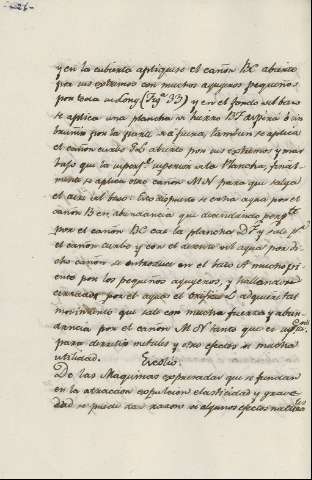 -26-
y en la cubierta aplíquese el cañon BC abierto
por sus extremos con muchos agujeros pequeños
por toda su Long (Fig.ª 33) y en el fondo del baso
se aplica una plancha de hierro DF aspera ó sin
bruñir por la parte de afuera, tambien se aplica
el cañon abierto por sus extremos y mas
bajo que la superf.e superior de la Plancha, final
mente se aplica otro cañon MN para que salga
el aire del baso: Esto dispuesto se echa agua por el
cañon B en abundancia que decindiendo por g.te
por el cañon BC cae la plancha DF y sale p.r
el cañon y con el descenso del agua por di
cho cañon se introduce en el baso A mucho
por los pequeños agujeros, y hallandose
cerrados por el agua el orificio L adquiere tal
movimiento que sale con mucha fuerza y abun
dancia por el cañon MN tanto que es suficiente
para derretir metales y otros efectos de mucha
utilidad.
Escolio.
De las Maquinas expresadas que se fundan
en la atraccion expulcion elasticidad y grave
dad se puede dar razon de algunos efectos naturales